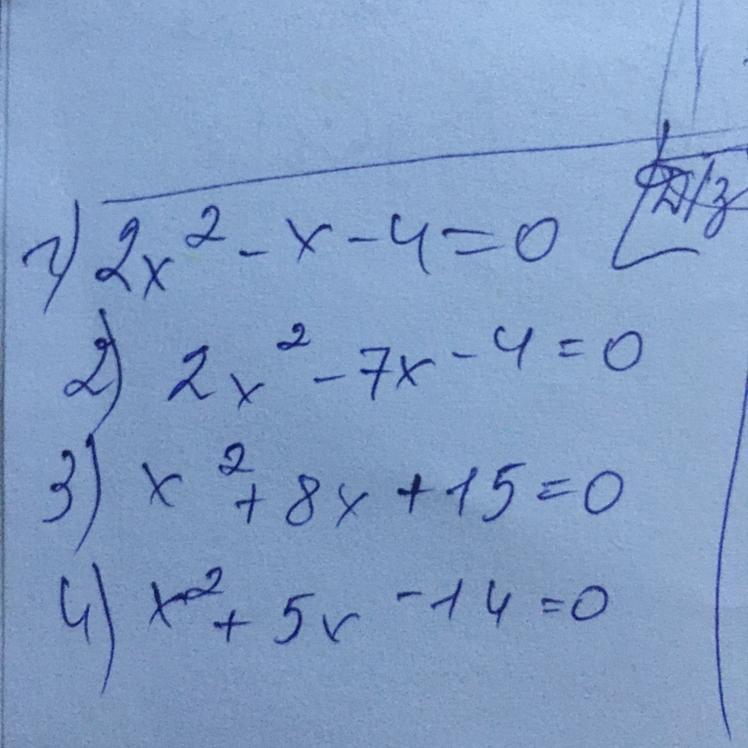 Д/з
1) 2x² - x - 4 = 0
2) 2x² - 7x - 4 = 0
3) x² + 8x + 15 = 0
4) x² + 5x - 14 = 0